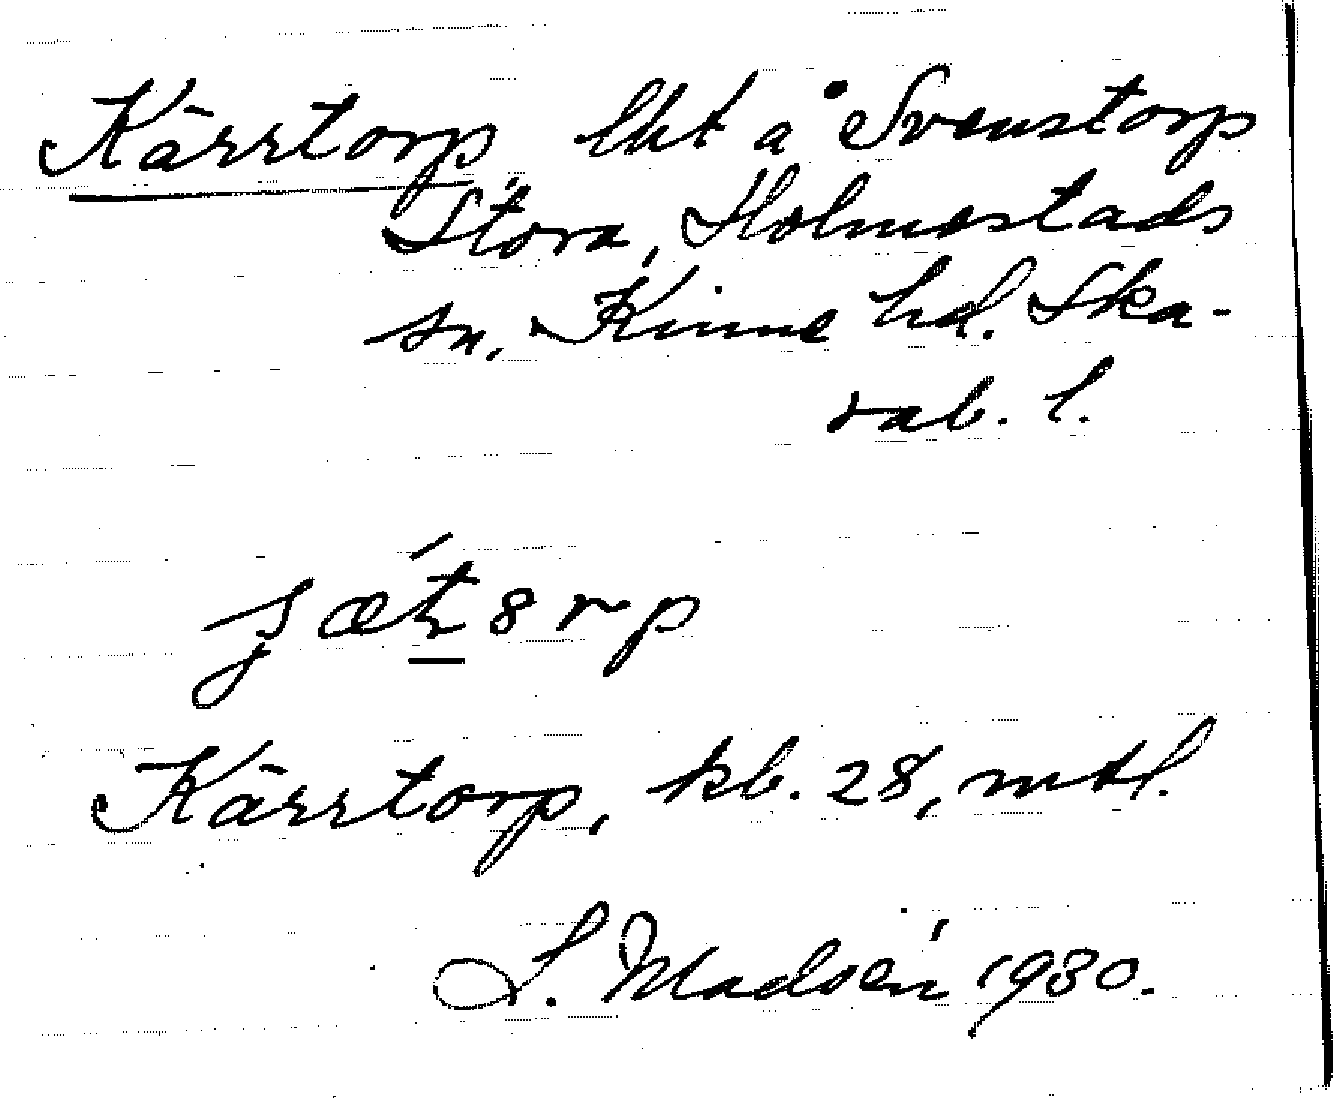 Kärrtorp, lht å Svenstorp
Stora, Holmestads
sn, Kinne hd. Ska-
rab. l.
Kärrtorp, kb. 28, mtl.
S. Madsén 1930.